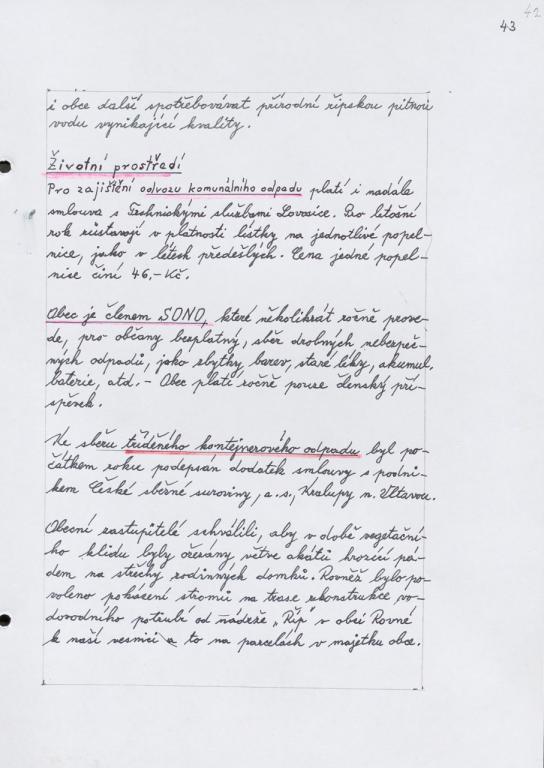 42
43
i obce další spotřebovávat přírodní řipskou pitnou
vodu vynikající kvality.
Životní prostředí
Pro zajištění odvozu komunálního odpadu platí i nadále
smlouva s Technickými službami Lovosice. Pro letošní
rok zůstavají v platnosti lístky na jednotlivé popel-
nice, jako v létech předešlých. Cena jedné popel-
nice činí 46,- Kč.
Obec je členem SONO, které několikrát ročně prove-
de, pro občany bezplatný, sběr drobných nebezpeč-
ných odpadů, jako zbytky barev, staré léky, akumul.
baterie, atd. - Obec platí ročně pouze členský pří-
spěvek.
Ke sběru tříděného kontejnerového odpadu byl po-
čátkem roku podepsán dodatek smlouvy s podni-
kem České sběrné suroviny, a.s., Kralupy n. Vltavou.
Obecní zastupitelé schválili, aby v době vegetační-
ho klidu byly ořezány větve akátů hrozící pá-
dem na střechy rodinných domků. Rovněž bylo po-
voleno pokácení stromů na trase rekonstrukce vo-
dovodního potrubí od nádrže "Říp" v obci Rovné
k naší vesnici a to na parcelách v majetku obce.